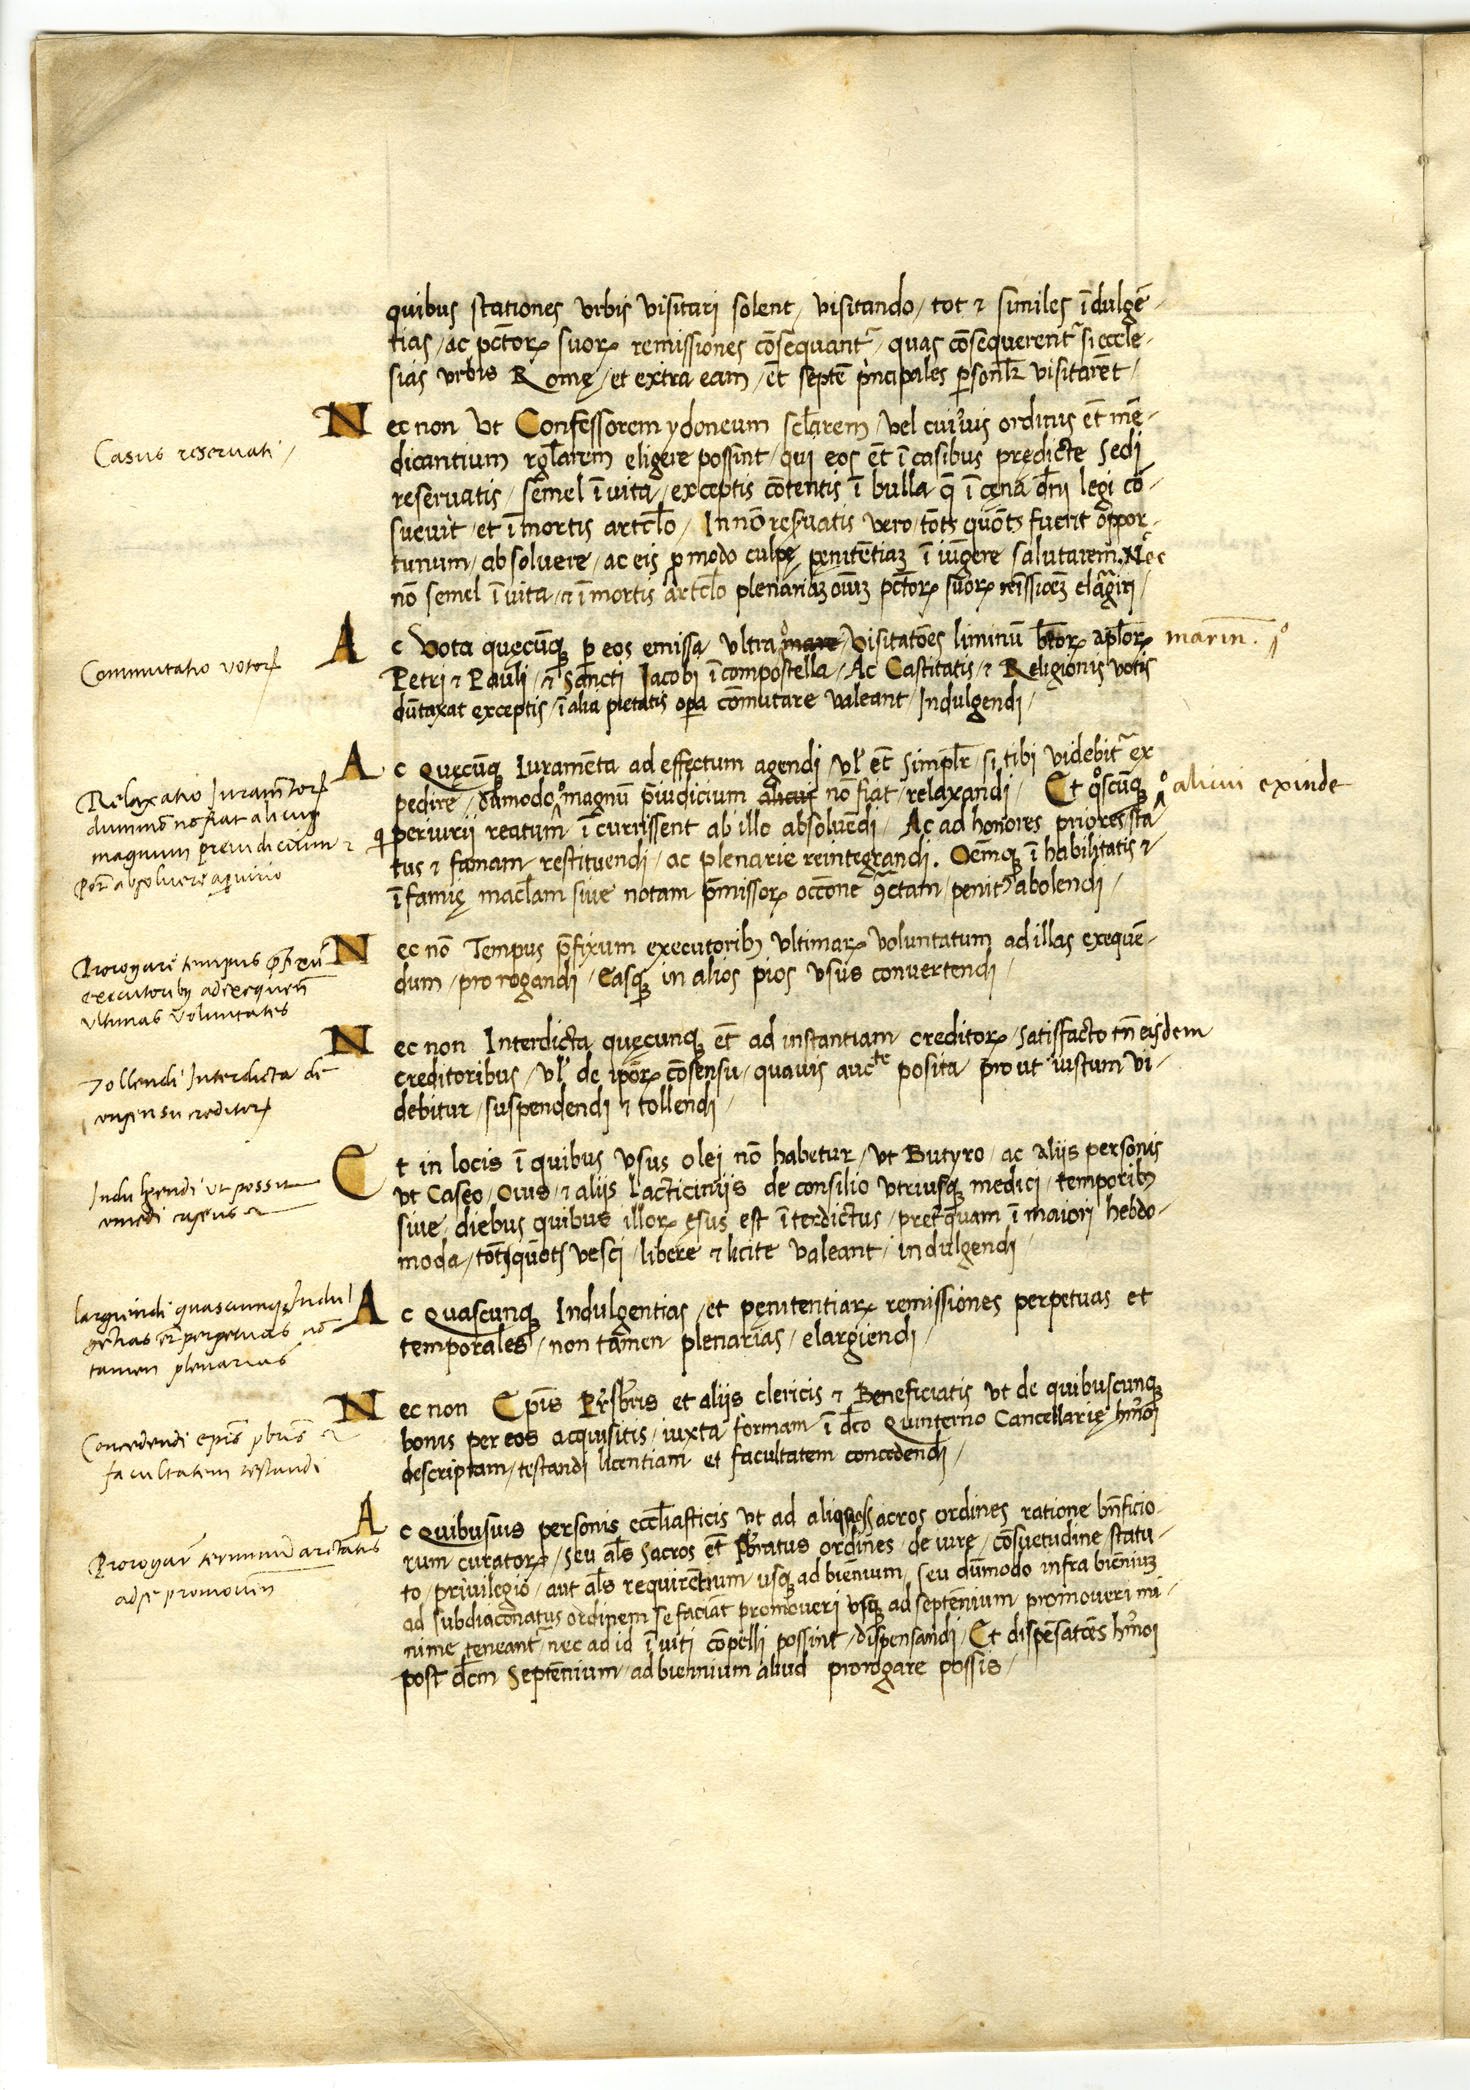 quibus stationes vrbis visitari solent / visitando / tot ⁊ similes īdulgē-
tias / ac pct̄oꝝ suoꝝ remissiones cōsequant᷑ / quas cōsequerent᷑ si eccle-
sias vrbis Romę / et extra eam / et̄ septē p̄ncipales ꝑsonlr̄ visitarēt /
Casus reservati /
Nec non Vt Confessorem ydoneum sclārem / vel cuiꝰuis ordinis et̄ mē-
dicantium rglārem eligere possint / qui eos et̄ ī casibus prędicte Sedi
reseruatis / semel ī vita / exceptis cōtentis ī bulla q̄ ī cęna dn̄i legi cō-
sueuit / et ī mortis artclō / In nō resꝰuatis vero / tōts quōts fuerit oppor-
tunum / absoluere / ac eis ꝓ modo culpę penitētiaꝫ ī iūgere salutarem. Nec
nō semel ī vita / ⁊ ī mortis artclō plenariaꝫ oīuꝫ pct̄oꝝ suoꝝ rēissiōeꝫ elāgiri /
Commutatio votoꝝ
Ac Vota quęcūqꝫ ꝑ eos emissa ultra mare Visitatōes liminū bt̄oꝝ apl̄oꝝ marin̄. iº
Petri ⁊ Pauli / ⁊ Sancti Iacobi ī compostella / Ac Castitatis / ⁊ Religionis votis
dūtaxat exceptis / ī alia pietatis oꝑa cōmutare valeant / Indulgendi /
Relaxatio Iuram̄toꝝ
dummō nō fiat alicuj
magnum preiudicium ⁊
Por̄ absoluere a ꝑiurio
Ac Quęcūqꝫ Iuramēta ad effectum agendi / vl̓ et̄ Simplr̄ si tibi videbit᷑ ex
pedire / dūmodo magnū p̄iudicium alicui nō fiat / relaxandi / Et qͦscūqꝫ alicui exinde
qi periurii reatum ī currissent ab illo absoluēdi / Ac ad honores priores sta
tus ⁊ famam restituendi / ac plenarie reintegrandi. Oēmqꝫ ī habilitatis ⁊
ī famię maclām siue notam p̄missoꝝ occōne ꝯctam / penitꝰ abolendi /
Prorogare tempus p̄fixū
executoribꝫ ad exequen̄
vltimas voluntates
Nec nō Tempus p̄fixum executoribꝫ vltimaꝝ voluntatum ad illas exequē-
dum / prorogandi / Easqꝫ in alios pios vsus convertendi /
Tollendi Interdicta de
consensu creditoꝝ
Nec non Interdicta quęcunqꝫ et̄ ad instantiam creditoꝝ / satisfacto tn̄ eisdem
creditoribus / vl̓ de ip̄oꝝ cōsensu / quauis aucᵗᵉ posita prout iustum vi-
debitur / suspendendi ⁊ tollendi /
Indulgendi ut possint
comedi caseus ⁊
Et in locis ī quibus vsus olei nō habetur / vt Butyro / ac aliis personis
vt Caseo / Ouis / ⁊ aliis lacticiniis de consilio vtriusqꝫ medici / temporibꝫ
siue diebus quibus illoꝝ ęsus est īterdictus / pret̓quam ī maiori hebdo-
moda / tōts quōts vesci / libere ⁊ licite valeant / indulgendi /
largiendi quascunqꝫ Indul
gētias et̄ perpetuas nō
tamen plenarias
Ac Quascunqꝫ Indulgentias / et pęnitentiaꝝ remissiones perpetuas et
temporales / non tamen plenarias / elargiendi /
Concedendi ep̄is pb̄ris ⁊
facultatem testandi
Nec non Ep̄is Pr̄sb̄ris et aliis clericis ⁊ Beneficiatis vt de quibuscunqꝫ
bonis per eos acquisitis / iuxta formam ī dc̄o Quinterno Cancellarię hm̄oi
descriptam / testandi licentiam et facultatem concedendi /
Prorogare terminū aetatis
ad se promouen̄
Ac Quibusuis personis ecclīasticis vt ad aliquos sacros ordines ratione bn̄ficio-
rum curatoꝝ / seu al̄s Sacros et̄ Pb̄ratus ordines / de iure / cōsuetudine / statu-
to / priuilegio / aut al̄s requirētium / vsqꝫ ad biēnium / seu dūmodo infra biēniuꝫ
ad subdiaconatus ordinem se faciāt promoueri vsqꝫ ad septēnium promoueri mi-
nime teneant᷑ / nec ad id ī uiti cōpelli possint / dispensandi / Et dispēsatōes hm̄oi
post dc̄m Septēnium / ad biennium aliud prorogare possis /